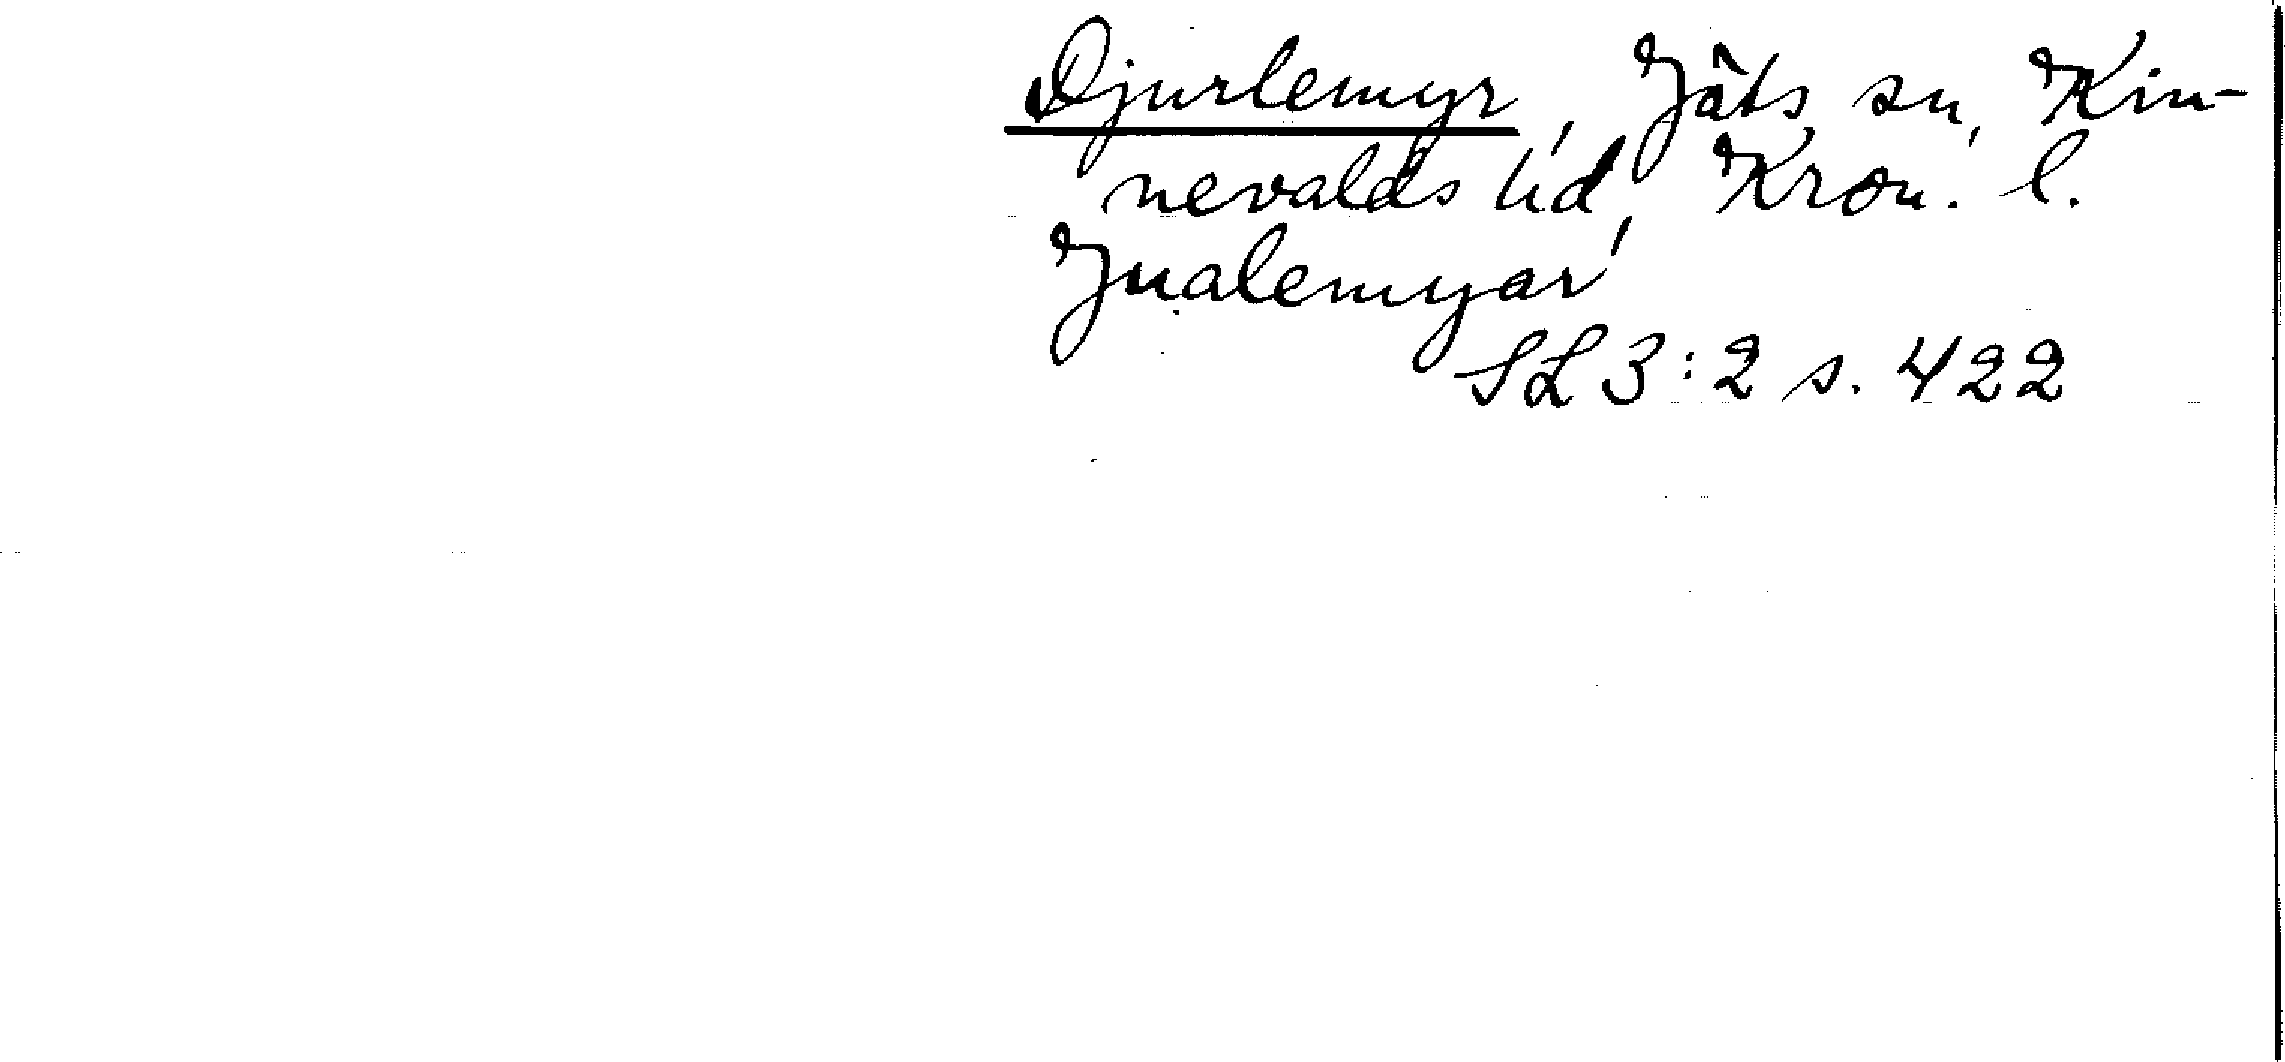 Djurlemyr, Jäts sn, Kin-
nevalds hd, Kron. l.
Jualemyar
SL 3:2 s. 422